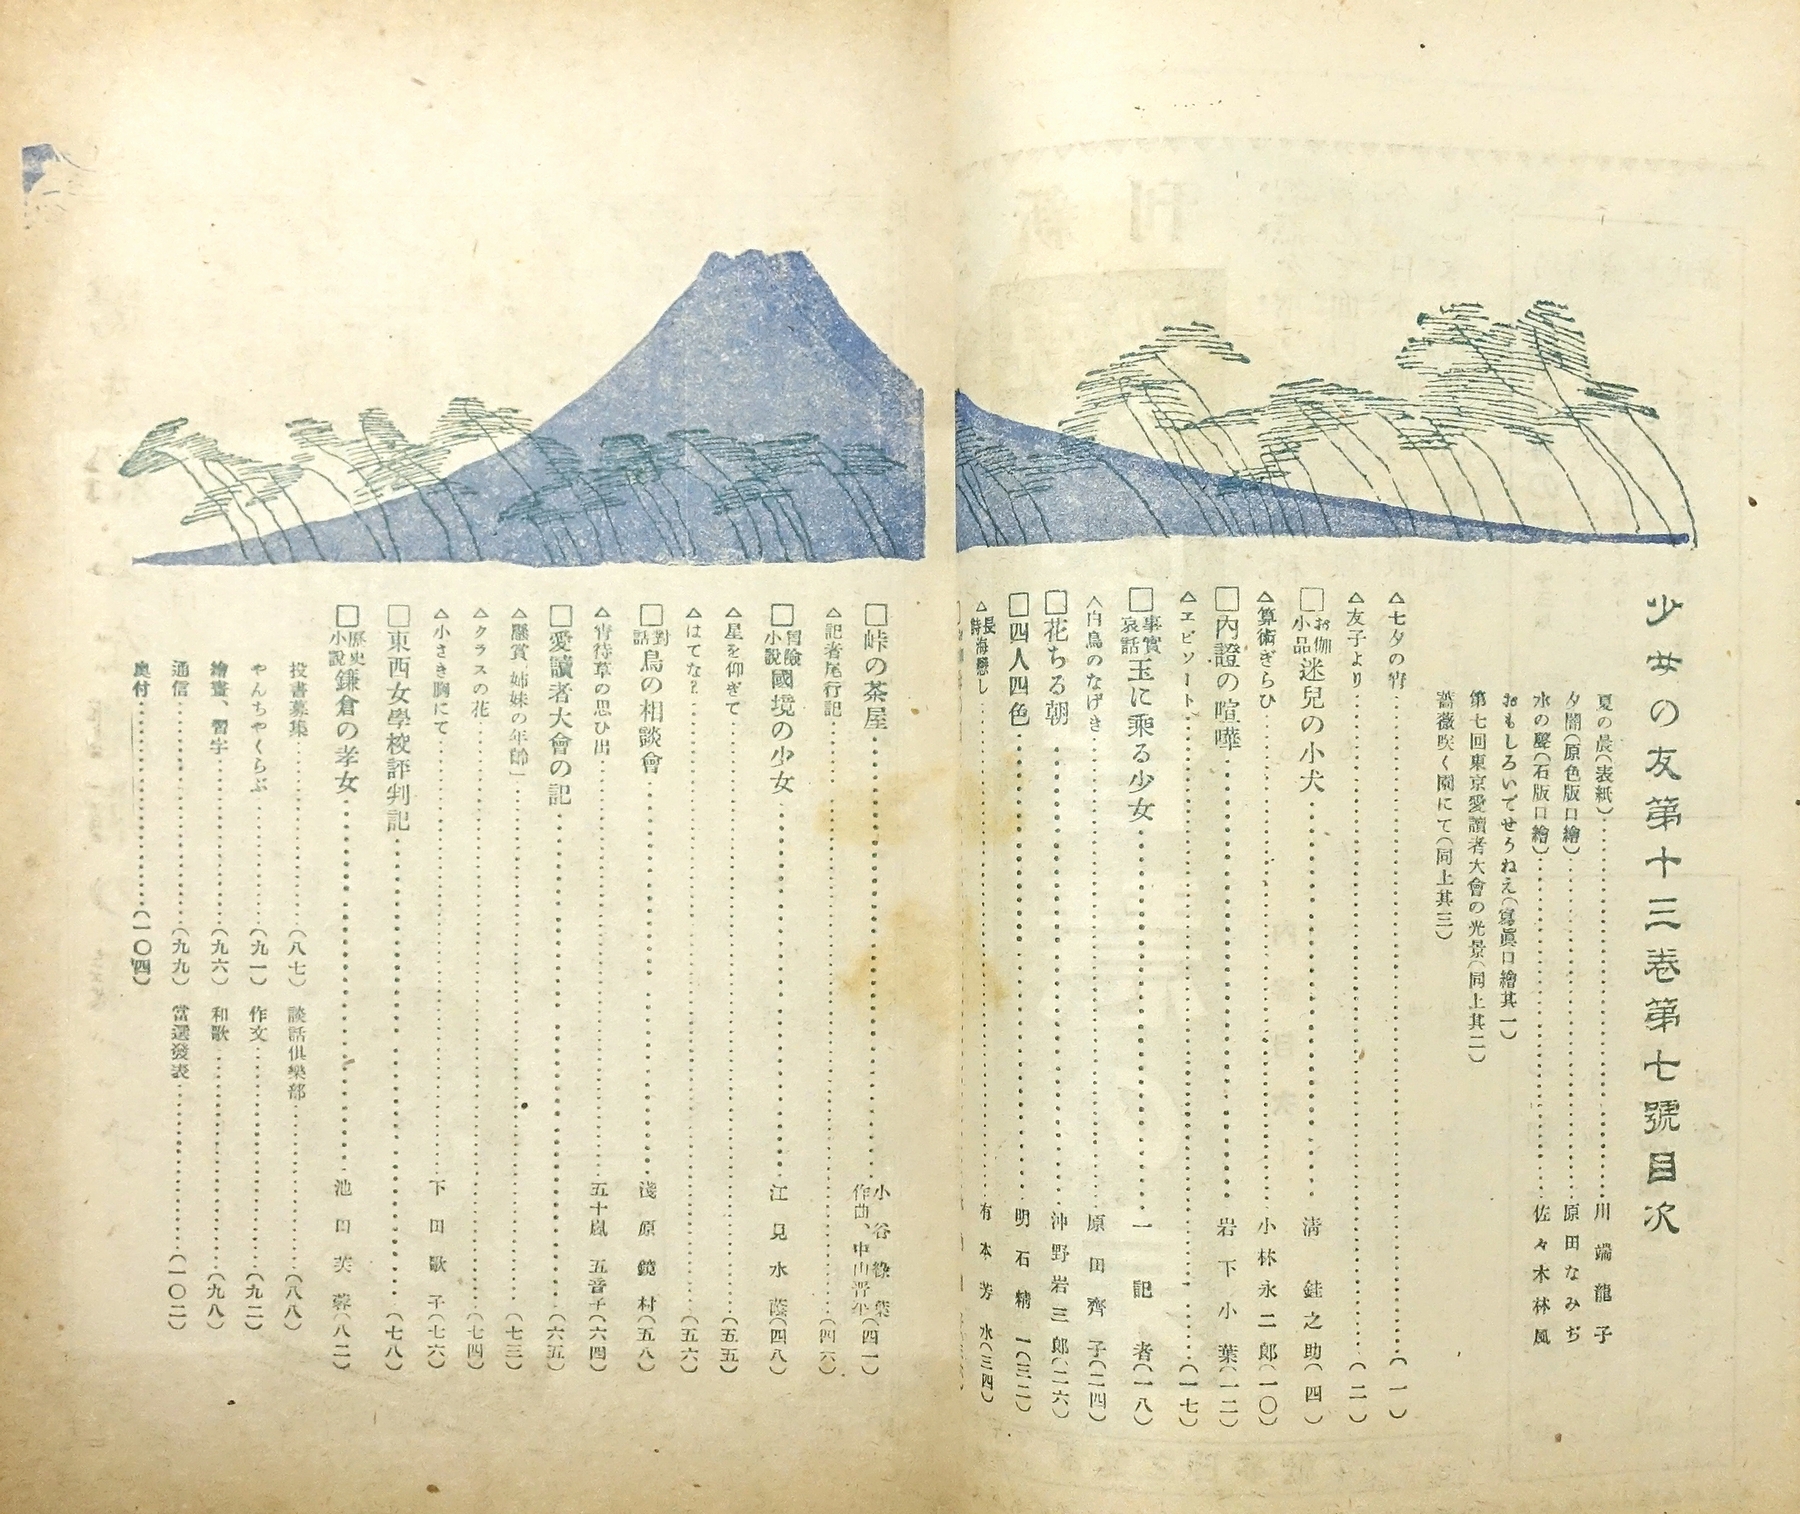 少女の友第十三巻第七號目次
夏の晨(表紙)……川端龍子
夕闇(原色版口繪)……原田なみぢ
水の響(石版口繪)……佐々木林風
おもしろいでせうねえ(寫眞口繪其一)
第七回東京愛讀者大會の光景(同上其二)
薔薇咲く園にて(同上其三)
△七夕の宵……(一)
△友子より……(二)
□お伽小品 迷兒の小犬……淸 鉐之助(四)
△算術ぎらひ……小林永二郎(一〇)
□內證の喧嘩……岩下小葉(一二)
△エピソート……(一七)
□事實哀話 玉に乘る少女……一記者(一八)
△白鳥のなげき……原田齊子(二四)
□花ちる朝……沖野岩三郎(二六)
□四人四色……明石精一(三二)
△長詩 海戀し……有本芳水(三四)
□峠の茶屋……小谷綠葉 作曲、中山晋平(四一)
△記者尾行記……(四六)
□冒險小說 國境の少女……江見水蔭(四八)
△星を仰ぎて……(五五)
△はてな?……(五六)
□對話 鳥の相談會……淺原鏡村(五八)
△宵待草の思ひ出……五十嵐五音子(六四)
□愛讀者大會の記……(六五)
△懸賞「姉妹の年齡」……(七三)
△クラスの花……(七四)
△小さき胸にて……下田歌子(七六)
□東西女學校評判記……(七八)
□歷史小說 鎌倉の孝女……池田芙蓉(八二)
投書募集……(八七) 談話俱樂部……(八八)
やんちやくらぶ……(九一) 作文……(九二)
繪畫、習字……(九六) 和歌……(九八)
通信……(九九) 當選發表……(一〇二)
奧付……(一〇四)